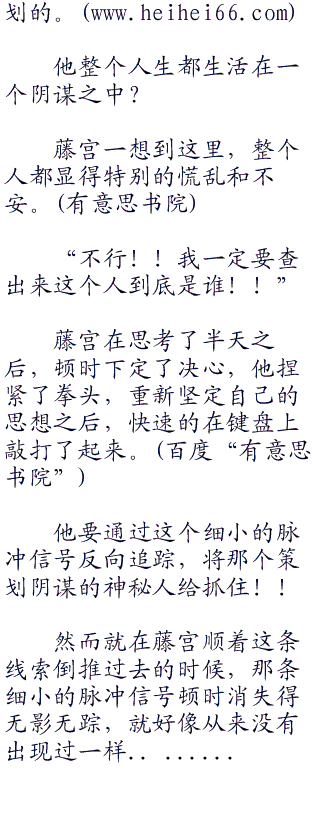 划的。(www.heihei66.com)
他整个人生都生活在一
个阴谋之中？
藤宫一想到这里，整个
人都显得特别的慌乱和不
安。(有意思书院)
“不行！！我一定要查
出来这个人到底是谁！！”
藤宫在思考了半天之
后，顿时下定了决心，他捏
紧了拳头，重新坚定自己的
思想之后，快速的在键盘上
敲打了起来。(百度“有意思
书院”)
他要通过这个细小的脉
冲信号反向追踪，将那个策
划阴谋的神秘人给抓住！！
然而就在藤宫顺着这条
线索倒推过去的时候，那条
细小的脉冲信号顿时消失得
无影无踪，就好像从来没有
出现过一样.. ......